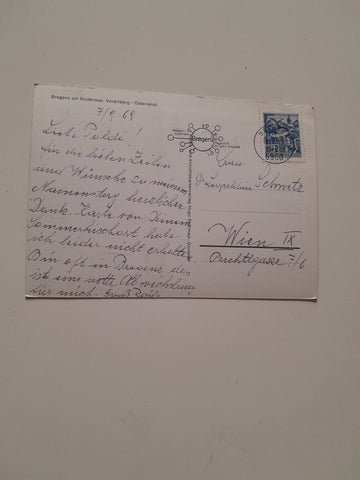 Bregenz am Bodensee, Vorarlberg - Österreich
7/9 69
Liebe Poldi!
für die lieben Zeilen
und Wünsche zu meinem
Namenstag herzlichen
Dank. Karte von Deinem
Sommer
ich leider nicht erhalten.
Bin oft in Bregenz das
ist eine nette Abwechslung
für mich. Gruß
Bregenz
6900
Frau
Leopoldine Schmitz
Wien IX
7/6